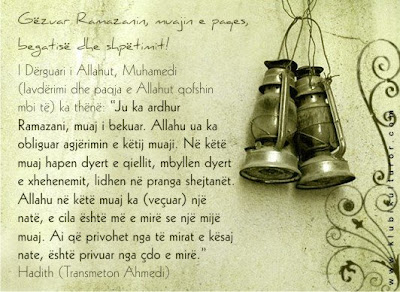 Gëzuar Ramazanin, muajin e paqes,
begatisë dhe shpëtimit!
I Dërguari i Allahut, Muhamedi
(lavdërimi dhe paqja e Allahut qofshin
mbi të) ka thënë: "Ju ka ardhur
Ramazani, muaj i bekuar. Allahu ua ka
obliguar agjërimin e këtij muaji. Në këtë
muaj hapen dyert e qiellit, mbyllen dyert
e xhehenemit, lidhen në pranga shejtanët.
Allahu në këtë muaj ka (veçuar) një
natë, e cila është më e mirë se një mijë
muaj. Ai që privohet nga të mirat e kësaj
nate, është privuar nga çdo e mirë."
Hadith (Transmeton Ahmedi)
www.klubikulturor.com